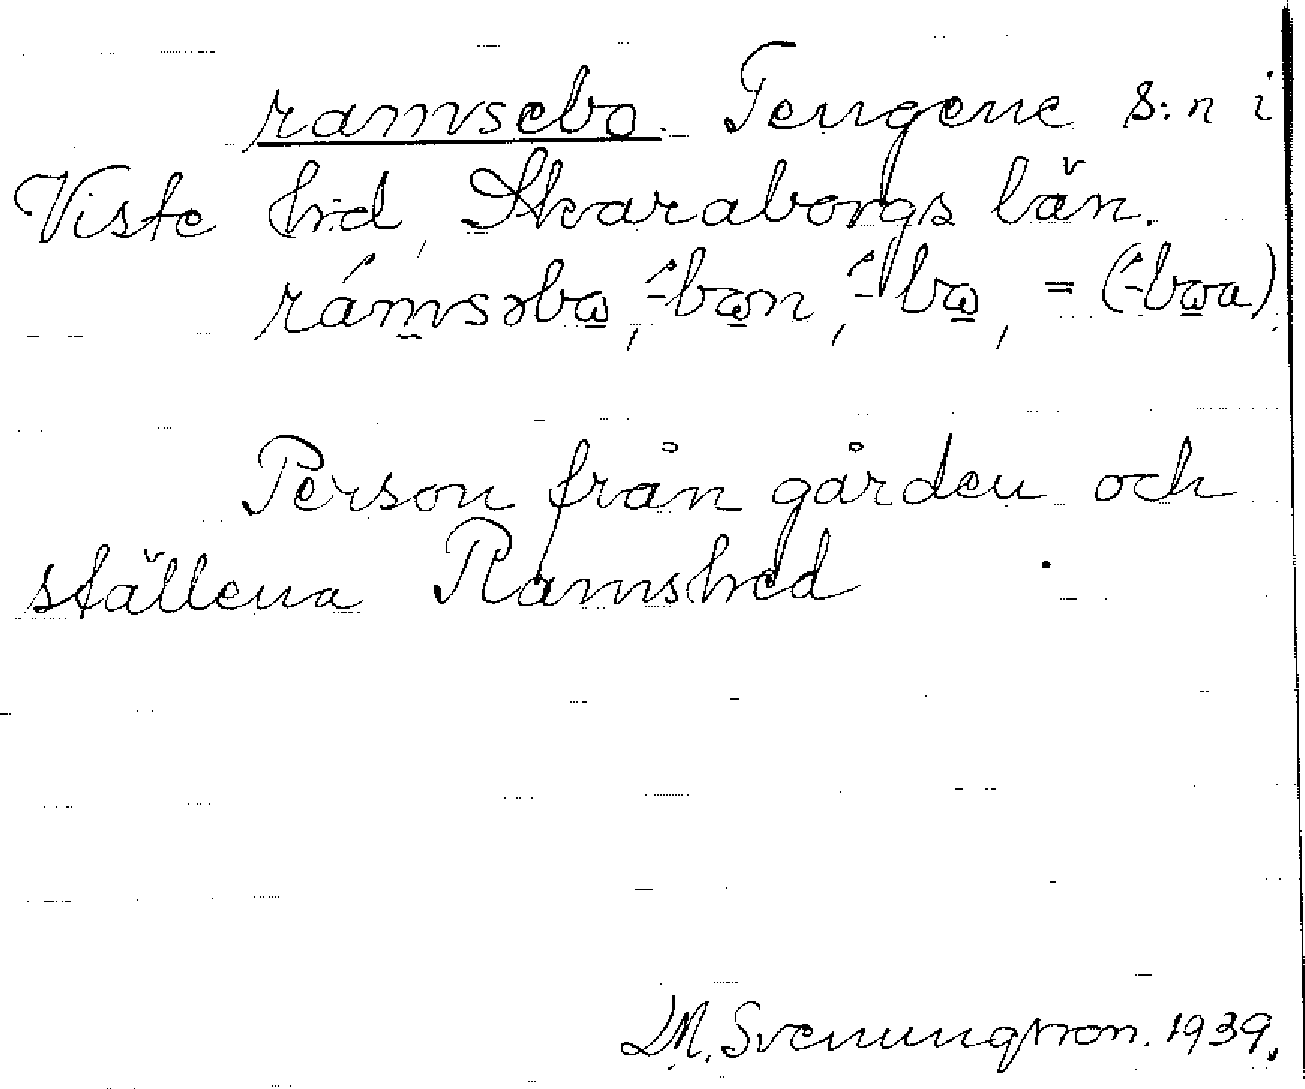 ramsebo. Tengene s:n i
Viste hrd, Skaraborgs län.
rámsəbω, ´-bωn, ´-bω, = (´-bωa)
Person från gården och
ställena Ramshed
M. Svenungsson. 1939.